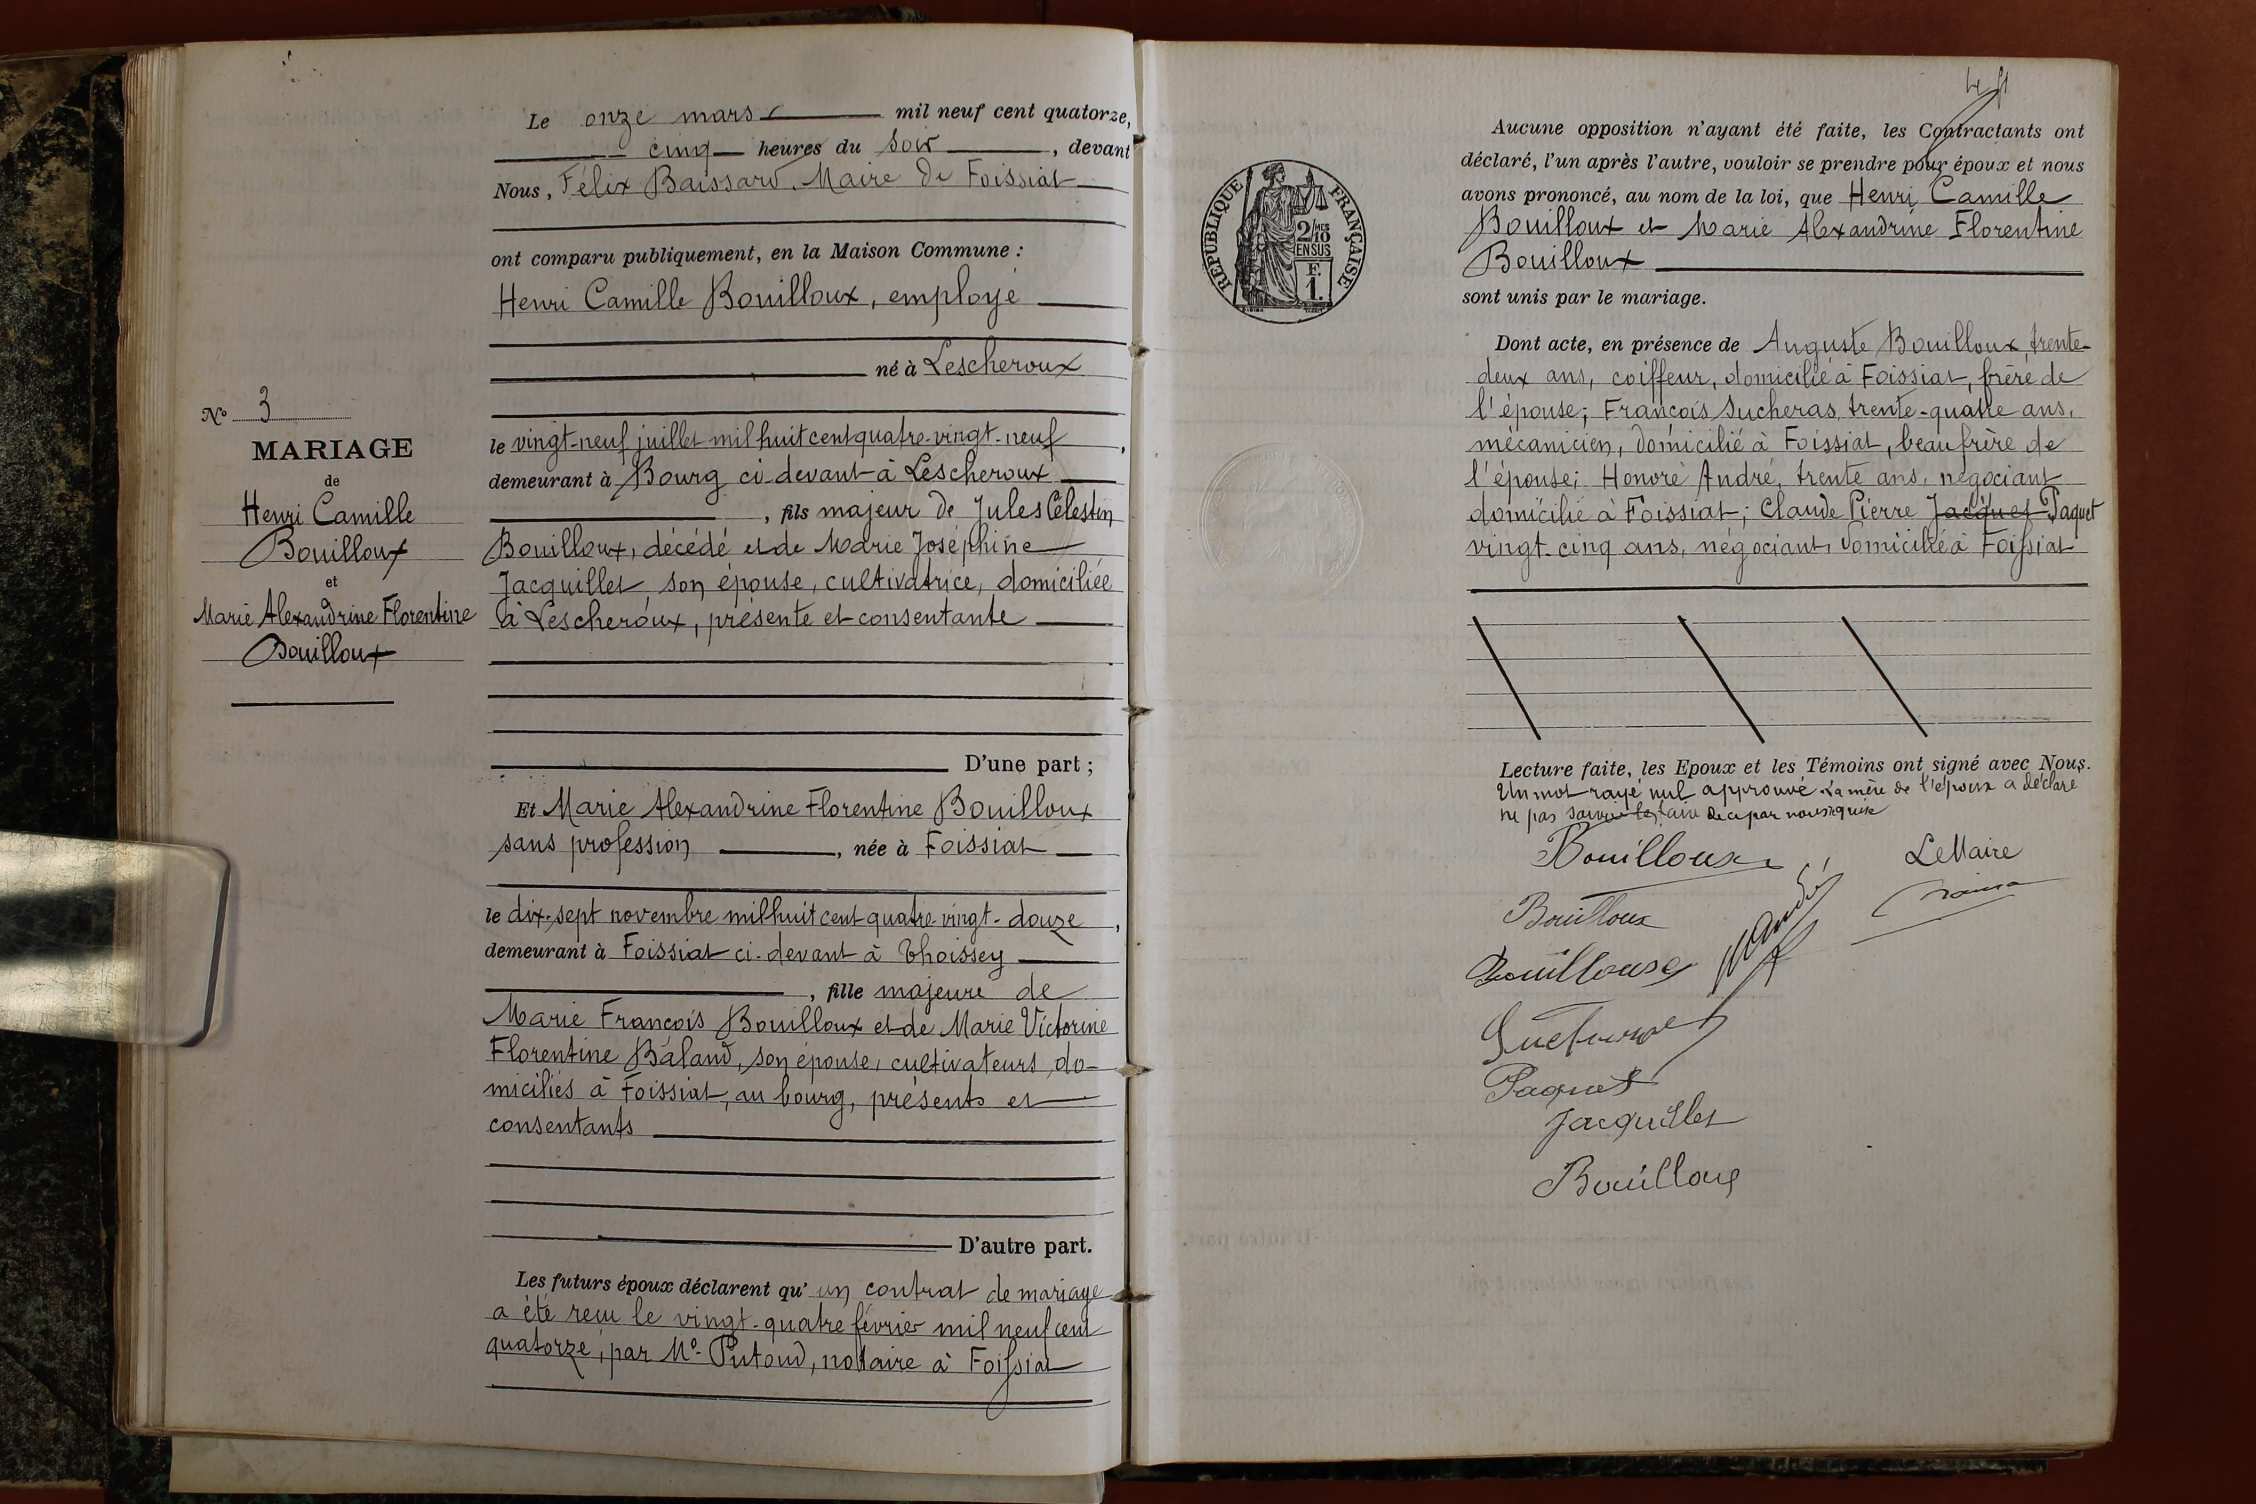 Le onze mars mil neuf cent quatorze,
cinq heures du soir, devant
Nous, Félix Baissard, Maire de Foissiat
ont comparu publiquement, en la Maison Commune :
Henri Camille Bouilloux, employé
né à Lescheroux
le vingt-neuf juillet mil huit cent quatre-vingt-neuf,
demeurant à Bourg ci-devant à Lescheroux
, fils majeur de Jules Célestin
Bouilloux, décédé et de Marie Joséphine
Jacquillet, son épouse, cultivatrice, domiciliée
à Lescheroux, présente et consentante
D'une part ;
Nº 3
MARIAGE
de
Henri Camille
Bouilloux
et
Marie Alexandrine Florentine
Bouilloux
Et Marie Alexandrine Florentine Bouilloux
sans profession, née à Foissiat
le dix-sept novembre mil huit cent quatre-vingt-douze,
demeurant à Foissiat ci-devant à Thoissey
, fille majeure de
Marie François Bouilloux et de Marie Victorine
Florentine Baland, son épouse, cultivateurs, do-
miciliés à Foissiat, au bourg, présents et
consentants
D'autre part.
Les futurs époux déclarent qu'un contrat de mariage
a été reçu le vingt-quatre février mil neuf cent
quatorze, par Mº Putoud, notaire à Foissiat
RÉPUBLIQUE FRANÇAISE
2/10 MES
EN SUS
F.
1.
Aucune opposition n'ayant été faite, les Contractants ont
déclaré, l'un après l'autre, vouloir se prendre pour époux et nous
avons prononcé, au nom de la loi, que Henri Camille
Bouilloux et Marie Alexandrine Florentine
Bouilloux
sont unis par le mariage.
Dont acte, en présence de Auguste Bouilloux, trente-
deux ans, coiffeur, domicilié à Foissiat, frère de
l'épouse; François Sucheras, trente-quatre ans,
mécanicien, domicilié à Foissiat, beau frère de
l'épouse; Honoré André, trente ans, négociant
domicilié à Foissiat; Claude Pierre Jacquet Paquet
vingt-cinq ans, négociant, domicilié à Foissiat
Lecture faite, les Epoux et les Témoins ont signé avec Nous.
Un mot rayé nul approuvé. La mère de l'époux a déclaré
ne pas savoir le faire de ce par nous requise
Bouilloux
Le Maire
Bouilloux
H André
Bouilloux
Paquet
Jacquillet
Bouilloux